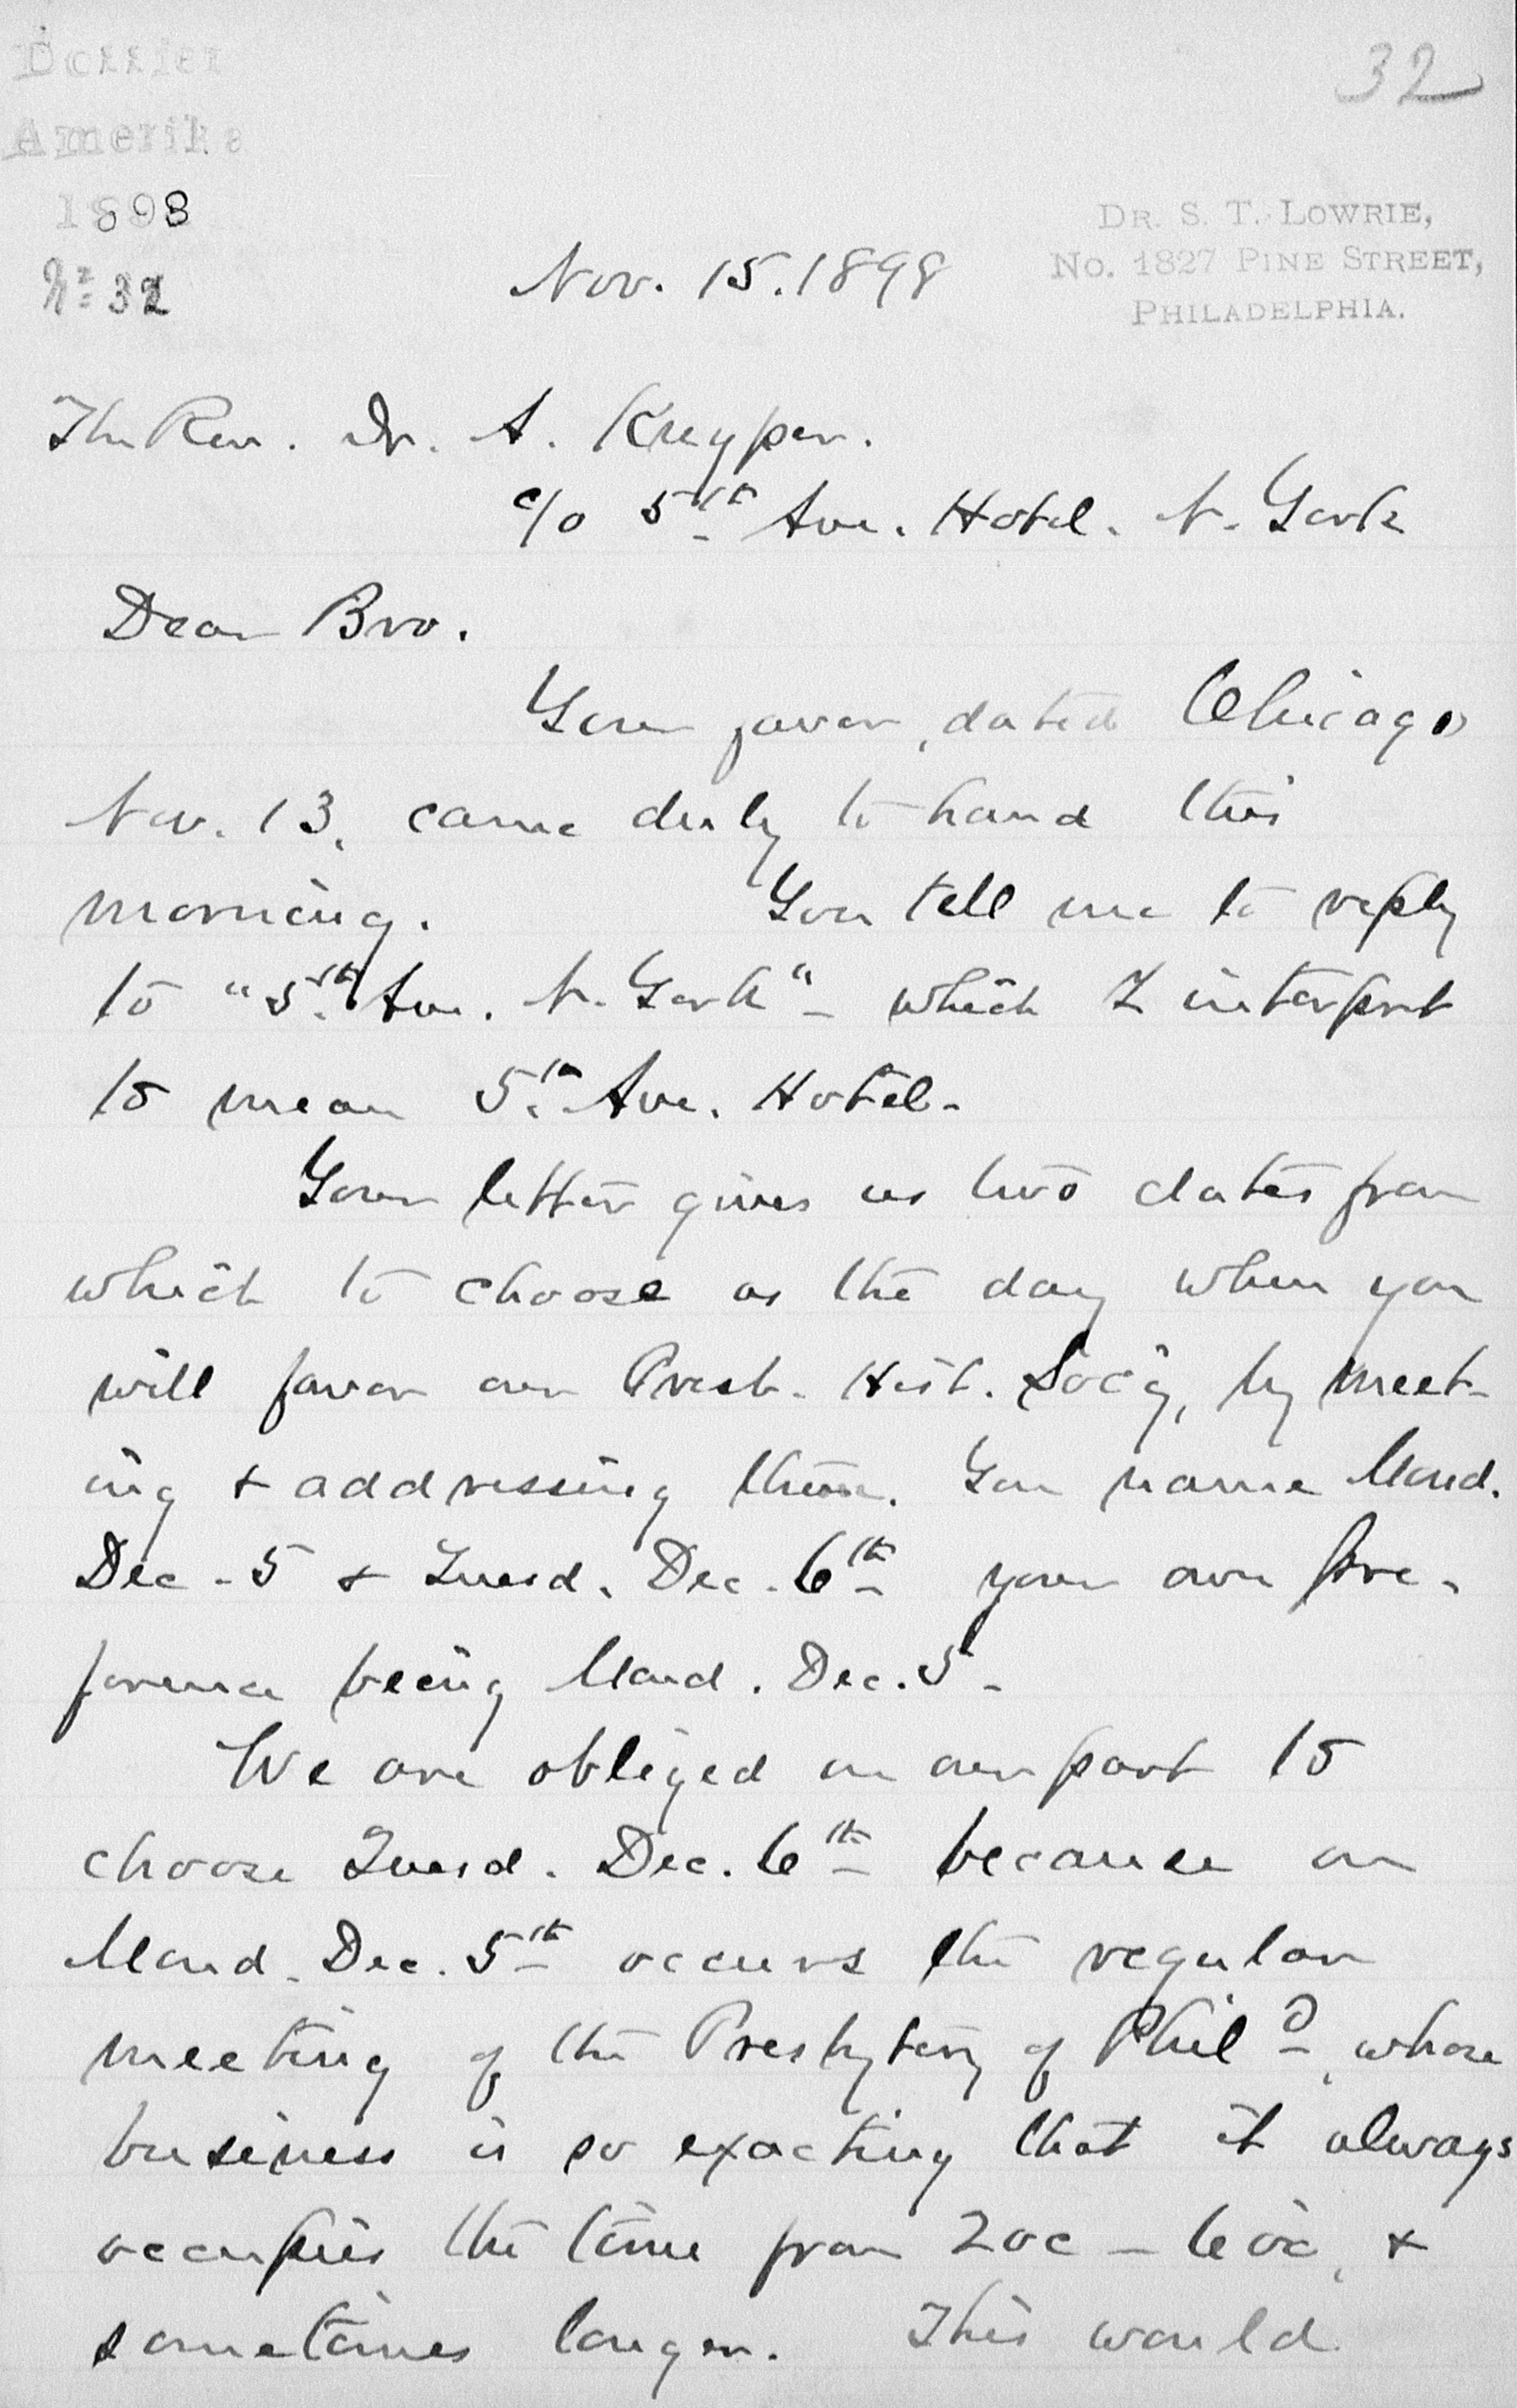 Dossier
Amerika
1898
No 32
32
DR. S. T. LOWRIE,
No. 1827 PINE STREET,
PHILADELPHIA.
Nov. 15. 1898
The Rev. Dr. A. Kuyper.
c/o 5th Ave. Hotel. N. York
Dear Bro.
Your favor, dated Chicago
Nov. 13, came duly to hand this
morning. You tell me to reply
to "5th Ave. N. York" - which I interpret
to mean 5th Ave. Hotel.
Your letter gives us two dates from
which to choose as the day when you
will favor our Presb. Hist. Soc'y, by meet-
ing & addressing them. You name Mond.
Dec. 5 & Tuesd. Dec. 6th your own pre-
ference being Mond. Dec. 5 -
We are obliged on our part to
choose Tuesd. Dec. 6th because on
Mond. Dec. 5th occurs the regular
meeting of the Presbytery of Phila, whose
business is so exacting that it always
occupies the time from 2 oc - 6 oc, &
sometimes longer. This would